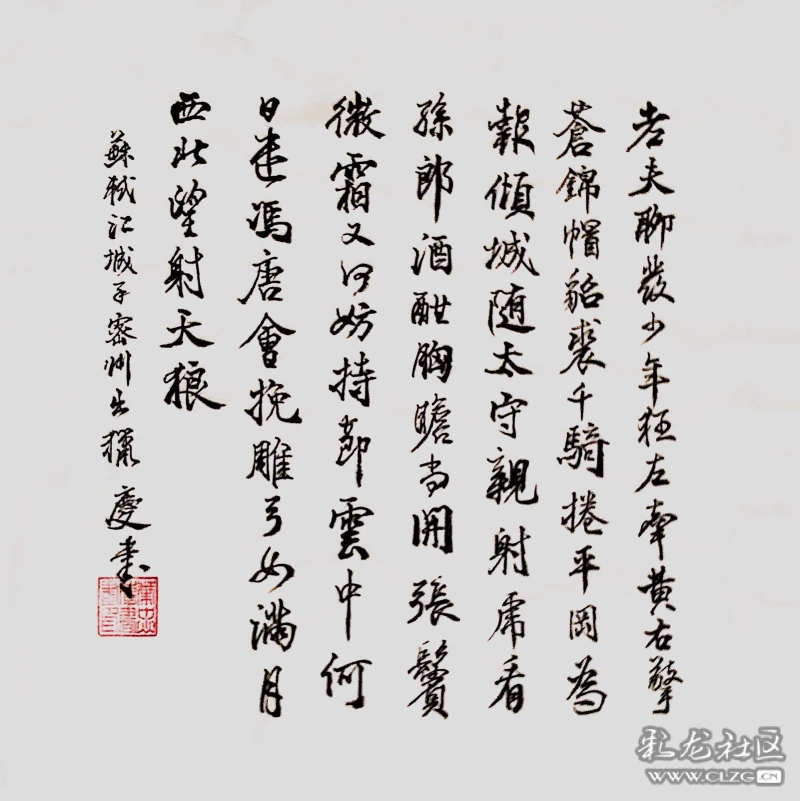 老夫聊發少年狂左牽黄右擎
蒼錦帽貂裘千騎捲平岡為
報傾城随太守親射虎看
孫郎酒酣胸瞻尚開張鬢
微霜又何妨持節雲中何
日遣馮唐會挽雕弓如滿月
西北望射天狼
蘇軾江城子密州出獵 慶書
乳龙社区
WWW.CLZG.CN